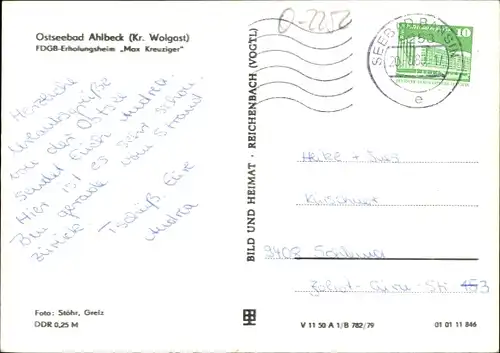 Ostseebad Ahlbeck (Kr. Wolgast)
FDGB-Erholungsheim „Max Kreuziger"
Herzliche
Urlaubsgrüße
von der Ostsee
sendet Euch Andrea.
Hier ist es sehr schön.
Bin gerade vom Strand
zurück
Tschüß Eure
Andrea
Foto: Stöhr, Greiz
DDR 0,25 M
BILD UND HEIMAT · REICHENBACH (VOGTL)
0-2252
SEEBAD BANSIN
e
10
Heike +
Kirschner
9408
V 11 50 A 1/B 782/79
01 01 11 846